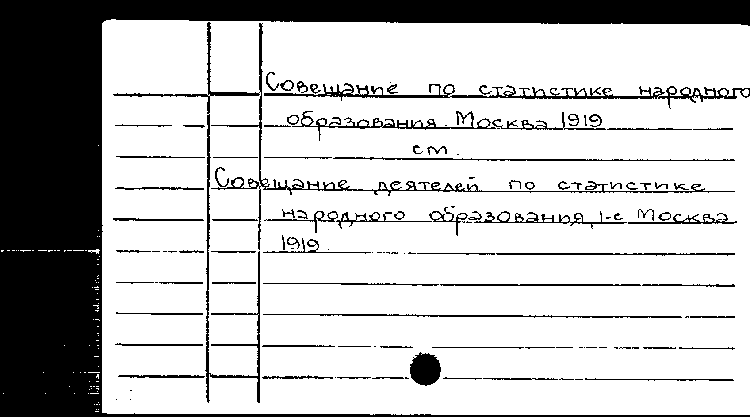 Совещание по статистике народного
образования. Москва 1919
см.
Совещание деятелей по статистике
народного образования, 1-е Москва
1919.